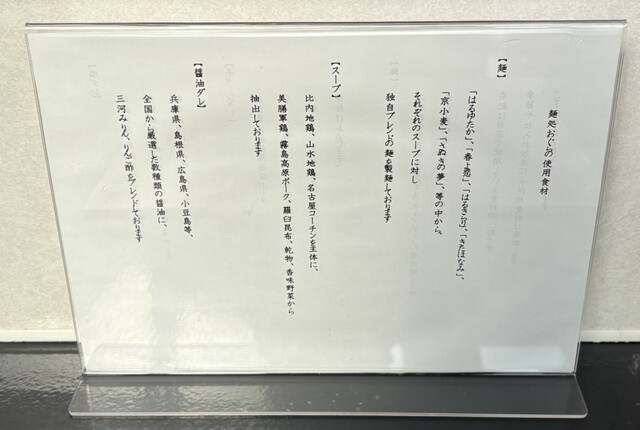 麺処おぐらの使用食材
【麺】
「はるゆたか」、「春よ恋」、「はるきらり」、「きたほなみ」、
「京小麦」、「さぬきの夢」、等の中から、
それぞれのスープに対し
独自ブレンドの麺を製麺しております
【スープ】
比内地鶏、山水地鶏、名古屋コーチンを主体に、
美膳軍鶏、霧島高原ポーク、羅臼昆布、乾物、香味野菜から
抽出しております
【醤油ダレ】
兵庫県、島根県、広島県、小豆島等、
全国から厳選した数種類の醤油に、
三河みりん、りんご酢をブレンドしております